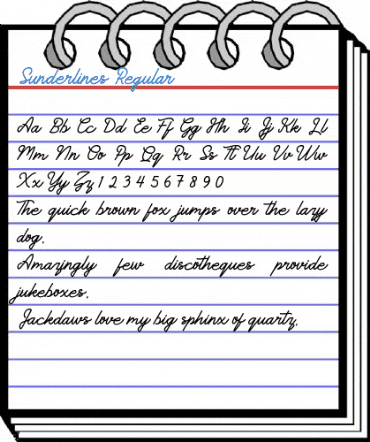 Sunderlines Regular
Aa Bb Cc Dd Ee Ff Gg Hh Ii Jj Kk Ll
Mm Nn Oo Pp Qq Rr Ss Tt Uu Vv Ww
Xx Yy Zz 1 2 3 4 5 6 7 8 9 0
The quick brown fox jumps over the lazy
dog.
Amazingly few discotheques provide
jukeboxes.
Jackdaws love my big sphinx of quartz.